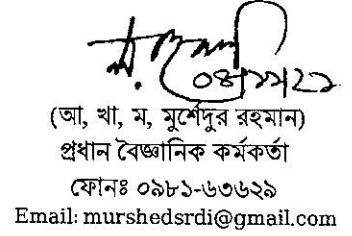 ০৪/১১/২১
(আ, খা, ম, মুর্শেদুর রহমান)
প্রধান বৈজ্ঞানিক কর্মকর্তা
ফোনঃ ০৯৮১-৬৩৬২৯
Email: murshedsrdi@gmail.com